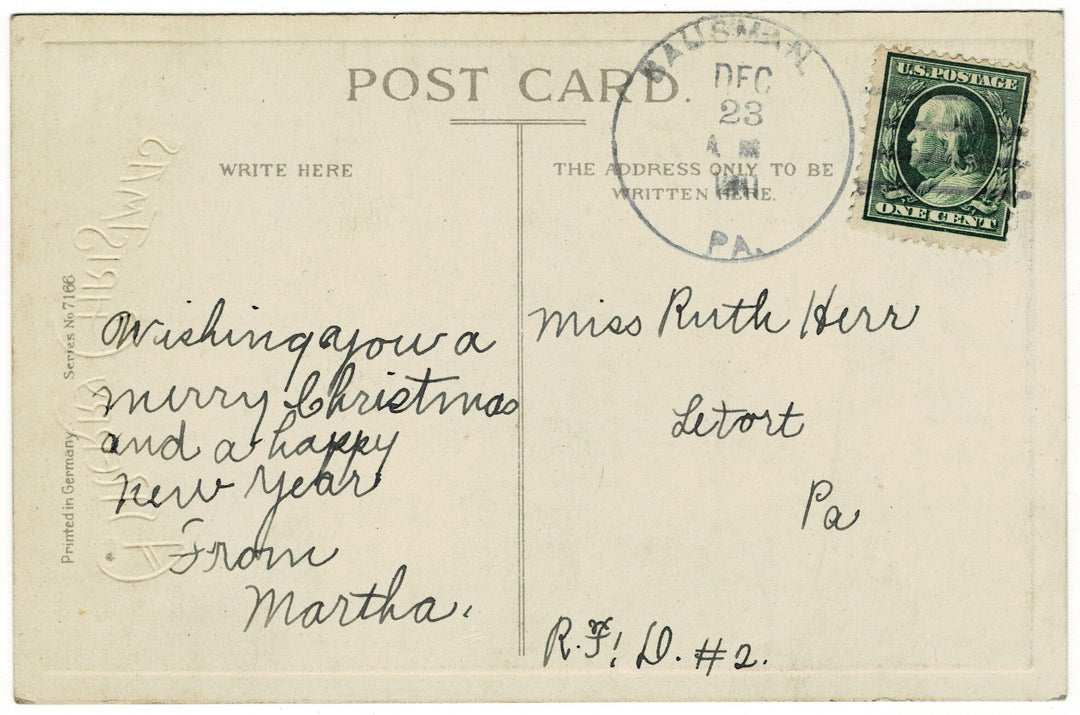 POST CARD.
WRITE HERE
THE ADDRESS ONLY TO BE
WRITTEN HERE.
BAUSMAN,
DEC
23
A M
1911
PA.
U.S. POSTAGE
ONE CENT
Printed in Germany
Series No 7166
A MERRY CHRISTMAS
Wishing you a
merry Christmas
and a happy
new year
From
Martha.
Miss Ruth Herr
Letort
Pa
R.F.D. #2.